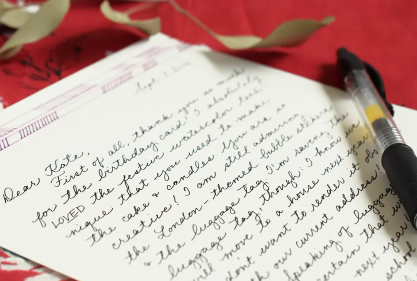 Sept. 1,
Dear Kate,
First of all, thank you so much
for the birthday card! I absolutely
LOVED the festive watercolor tech-
nique that you used to make
the cake & candles. You are so
creative! I am still admiring
the London-themed bubble stickers
& the luggage tag. I'm saving the
luggage tag though. I know
will move to a house next year
don't want to render it
our current address
Speaking of luggage
certain that
next year